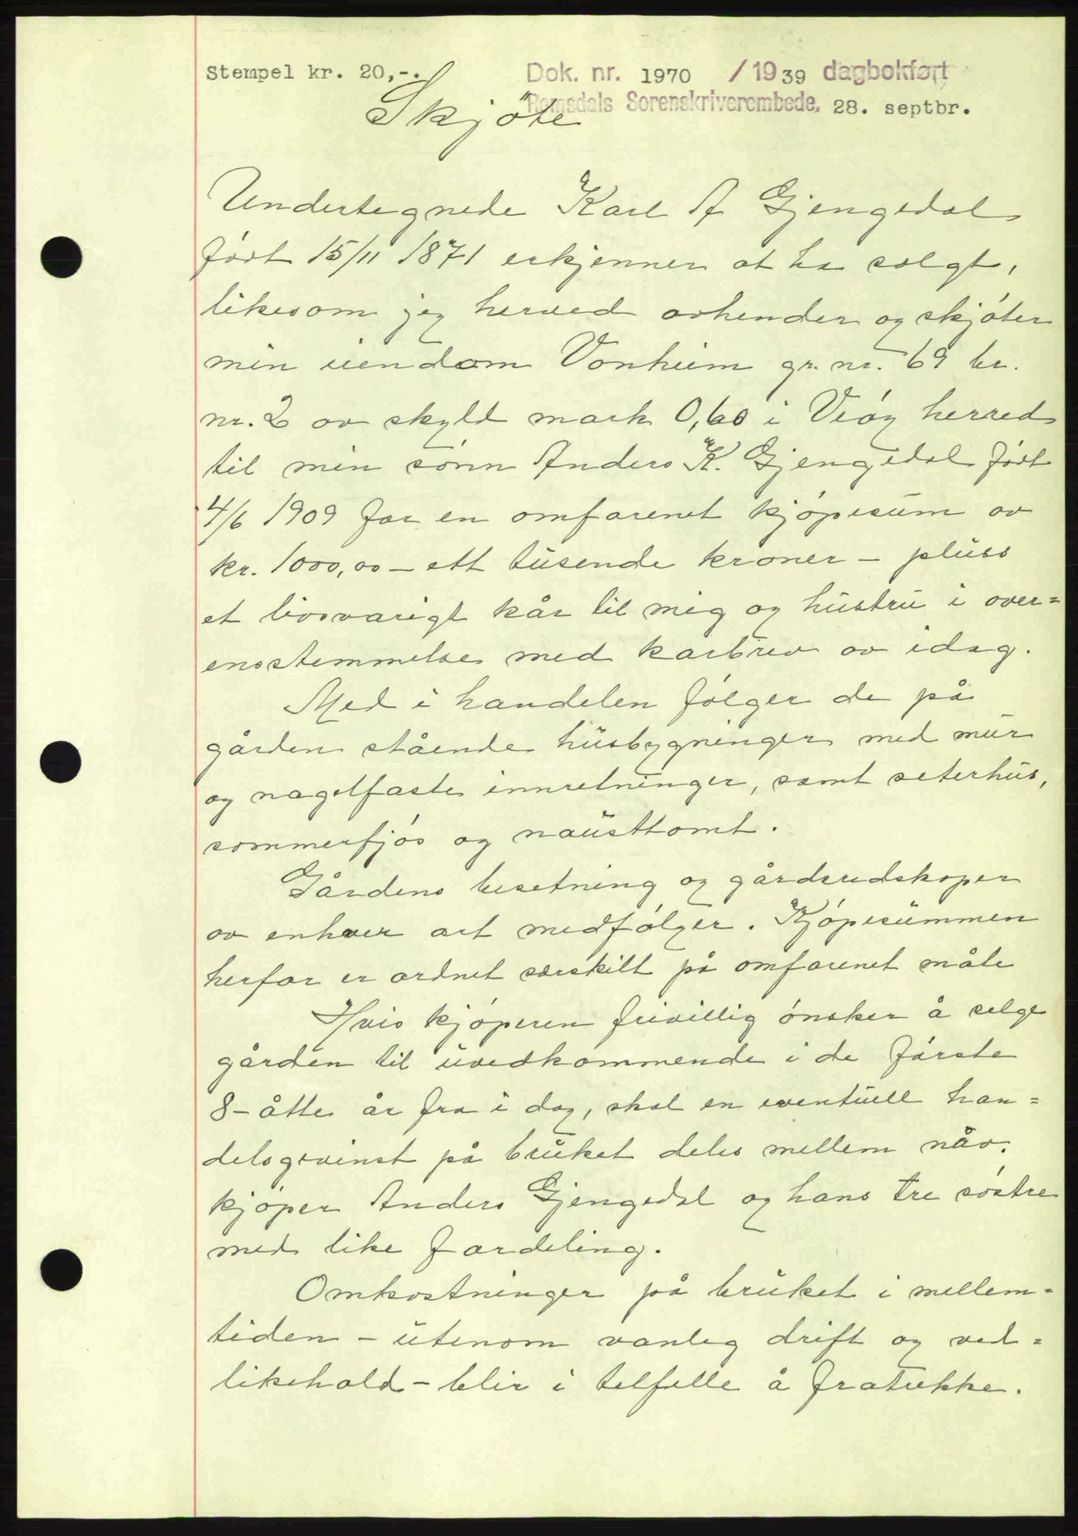 Stempel kr. 20,-.
Dok. nr. 1970 / 1939 dagbokført
Romsdals Sorenskriverembede, 28. septbr.
Skjöte
Undertegnede Karl A Gjengedal
födt 15/11 1871 erkjenner at ha solgt,
likesom jeg herved avhender og skjöter
min eiendom Vonheim gr. nr. 69 br.
nr. 2 av skyld mark 0,60 i Veöy herred
til min sönn Anders K. Gjengedal födt
4/6 1909 for en omforenet kjöpesum av
kr. 1000,00 - ett tusende kroner - pluss
et livsvarigt kår til mig og hustru i over=
ensstemmelse med kårbrev av idag.
Med i handelen fölger de på
gården stående husbygninger med mur
og nagelfaste innretninger, samt seterhus,
sommerfjös og nausttomt.
Gårdens besetning og gårdsredskaper
av enhver art medfölger. Kjöpesummen
herfor er ordnet særskilt på omforenet måte
Hvis kjöperen frivillig önsker å selge
gården til uvedkommende i de förste
8 - åtte år fra i dag, skal en eventuell han=
delsgevinst på bruket deles mellem nåv.
kjöper Anders Gjengedal og hans tre söstre
med like fordeling.
Omkostninger på bruket i mellem=
tiden - utenom vanleg drift og ved=
likehold - blir i tilfelle å fratrekke.